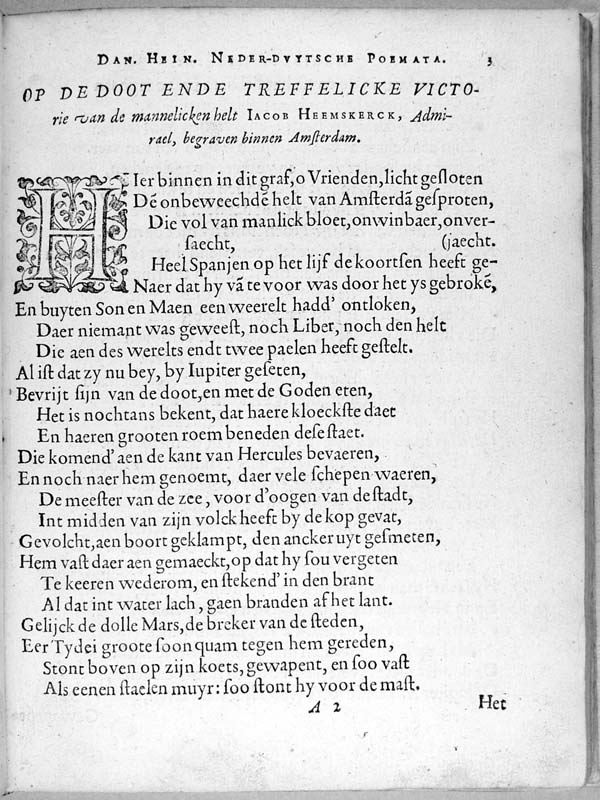 DAN. HEIN. NEDER-DVYTSCHE POEMATA. 3
OP DE DOOT ENDE TREFFELICKE VICTO-
rie van de mannelicken helt IACOB HEEMSKERCK, Admi-
rael, begraven binnen Amſterdam.
HIer binnen in dit graf, o Vrienden, licht geſloten
Dē onbeweechdē helt van Amſterdā geſproten,
Die vol van manlick bloet, onwinbaer, onver-
ſaecht, (jaecht.
Heel Spanjen op het lijf de koortſen heeft ge-
Naer dat hy vā te voor was door het ys gebrokē,
En buyten Son en Maen een weerelt hadd' ontloken,
Daer niemant was geweeſt, noch Liber, noch den helt
Die aen des werelts endt twee paelen heeft geſtelt.
Al iſt dat zy nu bey, by Iupiter geſeten,
Bevrijt ſijn van de doot, en met de Goden eten,
Het is nochtans bekent, dat haere kloeckſte daet
En haeren grooten roem beneden deſe ſtaet.
Die komend' aen de kant van Hercules bevaeren,
En noch naer hem genoemt, daer vele ſchepen waeren,
De meeſter van de zee, voor d'oogen van de ſtadt,
Int midden van zijn volck heeft by de kop gevat,
Gevolcht, aen boort geklampt, den ancker uyt geſmeten,
Hem vaſt daer aen gemaeckt, op dat hy ſou vergeten
Te keeren wederom, en ſtekend' in den brant
Al dat int water lach, gaen branden af het lant.
Gelijck de dolle Mars, de breker van de ſteden,
Eer Tydei groote ſoon quam tegen hem gereden,
Stont boven op zijn koets, gewapent, en ſoo vaſt
Als eenen ſtaelen muyr: ſoo ſtont hy voor de maſt.
A 2 Het